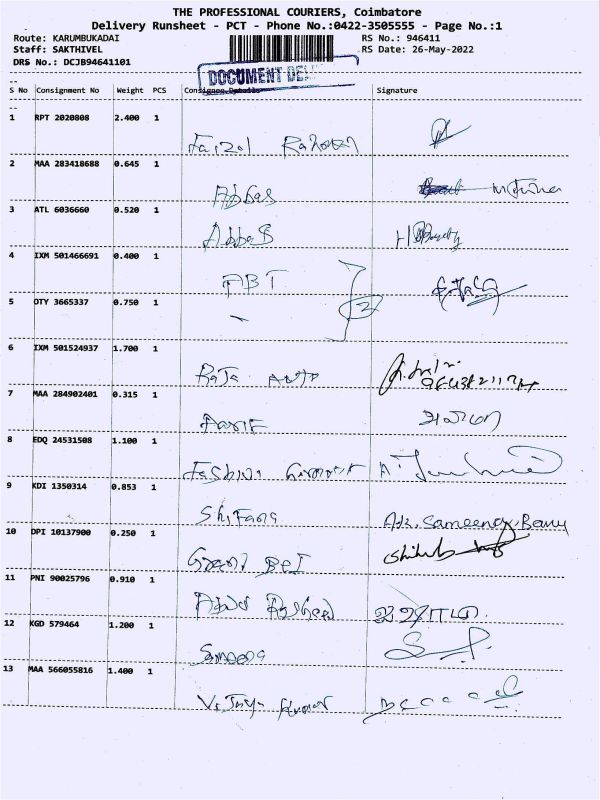 THE PROFESSIONAL COURIERS, Coimbatore
Delivery Runsheet - PCT - Phone No.:0422-3505555 - Page No.:1
Route: KARUMBUKADAI RS No.: 946411
Staff: SAKTHIVEL RS Date: 26-May-2022
DRS No.: DCJB94641101
DOCUMENT DEL
S No Consignment No Weight PCS Consignee Details Signature
1 RPT 2020808 2.400 1
Faizal
2 MAA 283418688 0.645 1
Abbas
3 ATL 6036660 0.520 1
Abbas
4 IXM 501466691 0.400 1
ABT
5 OTY 3665337 0.750 1
6 IXM 501524937 1.700 1
Raja Auto
7 MAA 284902401 0.315 1
Aarif
8 EDQ 24531508 1.100 1
9 KDI 1350314 0.853 1
Shifana Sameena Banu
10 DPI 10137900 0.250 1
11 PNI 90025796 0.910 1
Abdul Rasheed
12 KGD 579464 1.200 1
Sameena
13 MAA 566055816 1.400 1
Kumar